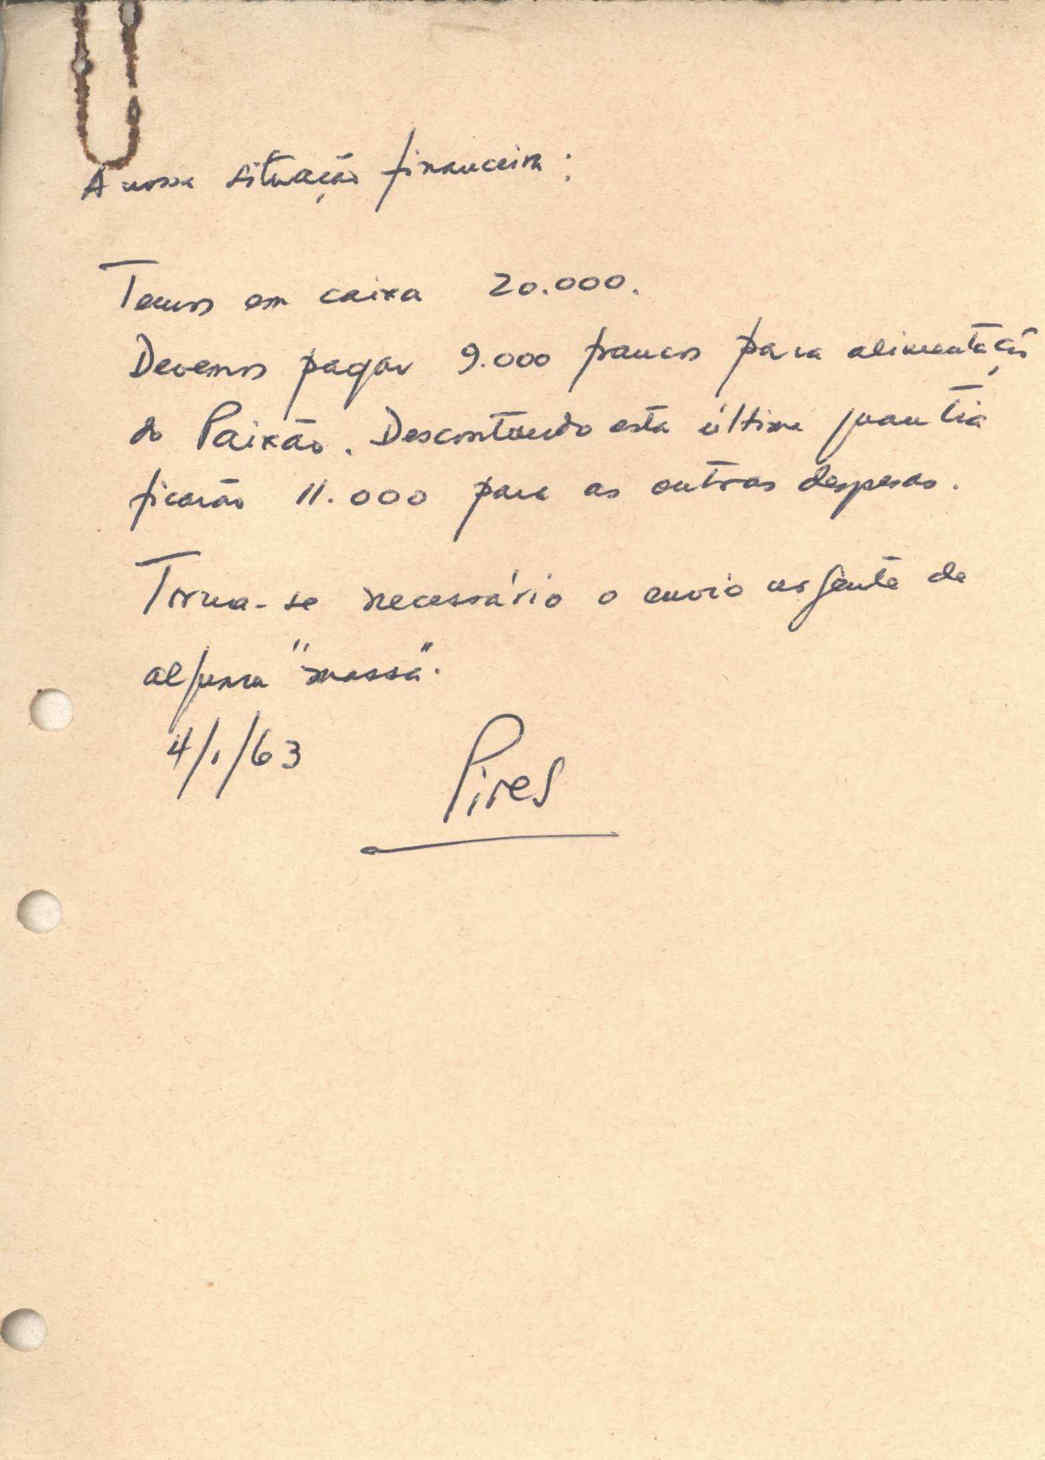 A nossa situação financeira:
Temos em caixa 20.000.
Devemos pagar 9.000 francos para alimentação
do Paixão. Descontando esta última quantia
ficarão 11.000 para as outras despesas.
Torna-se necessário o envio urgente de
alguma "massa".
4/1/63
Pires